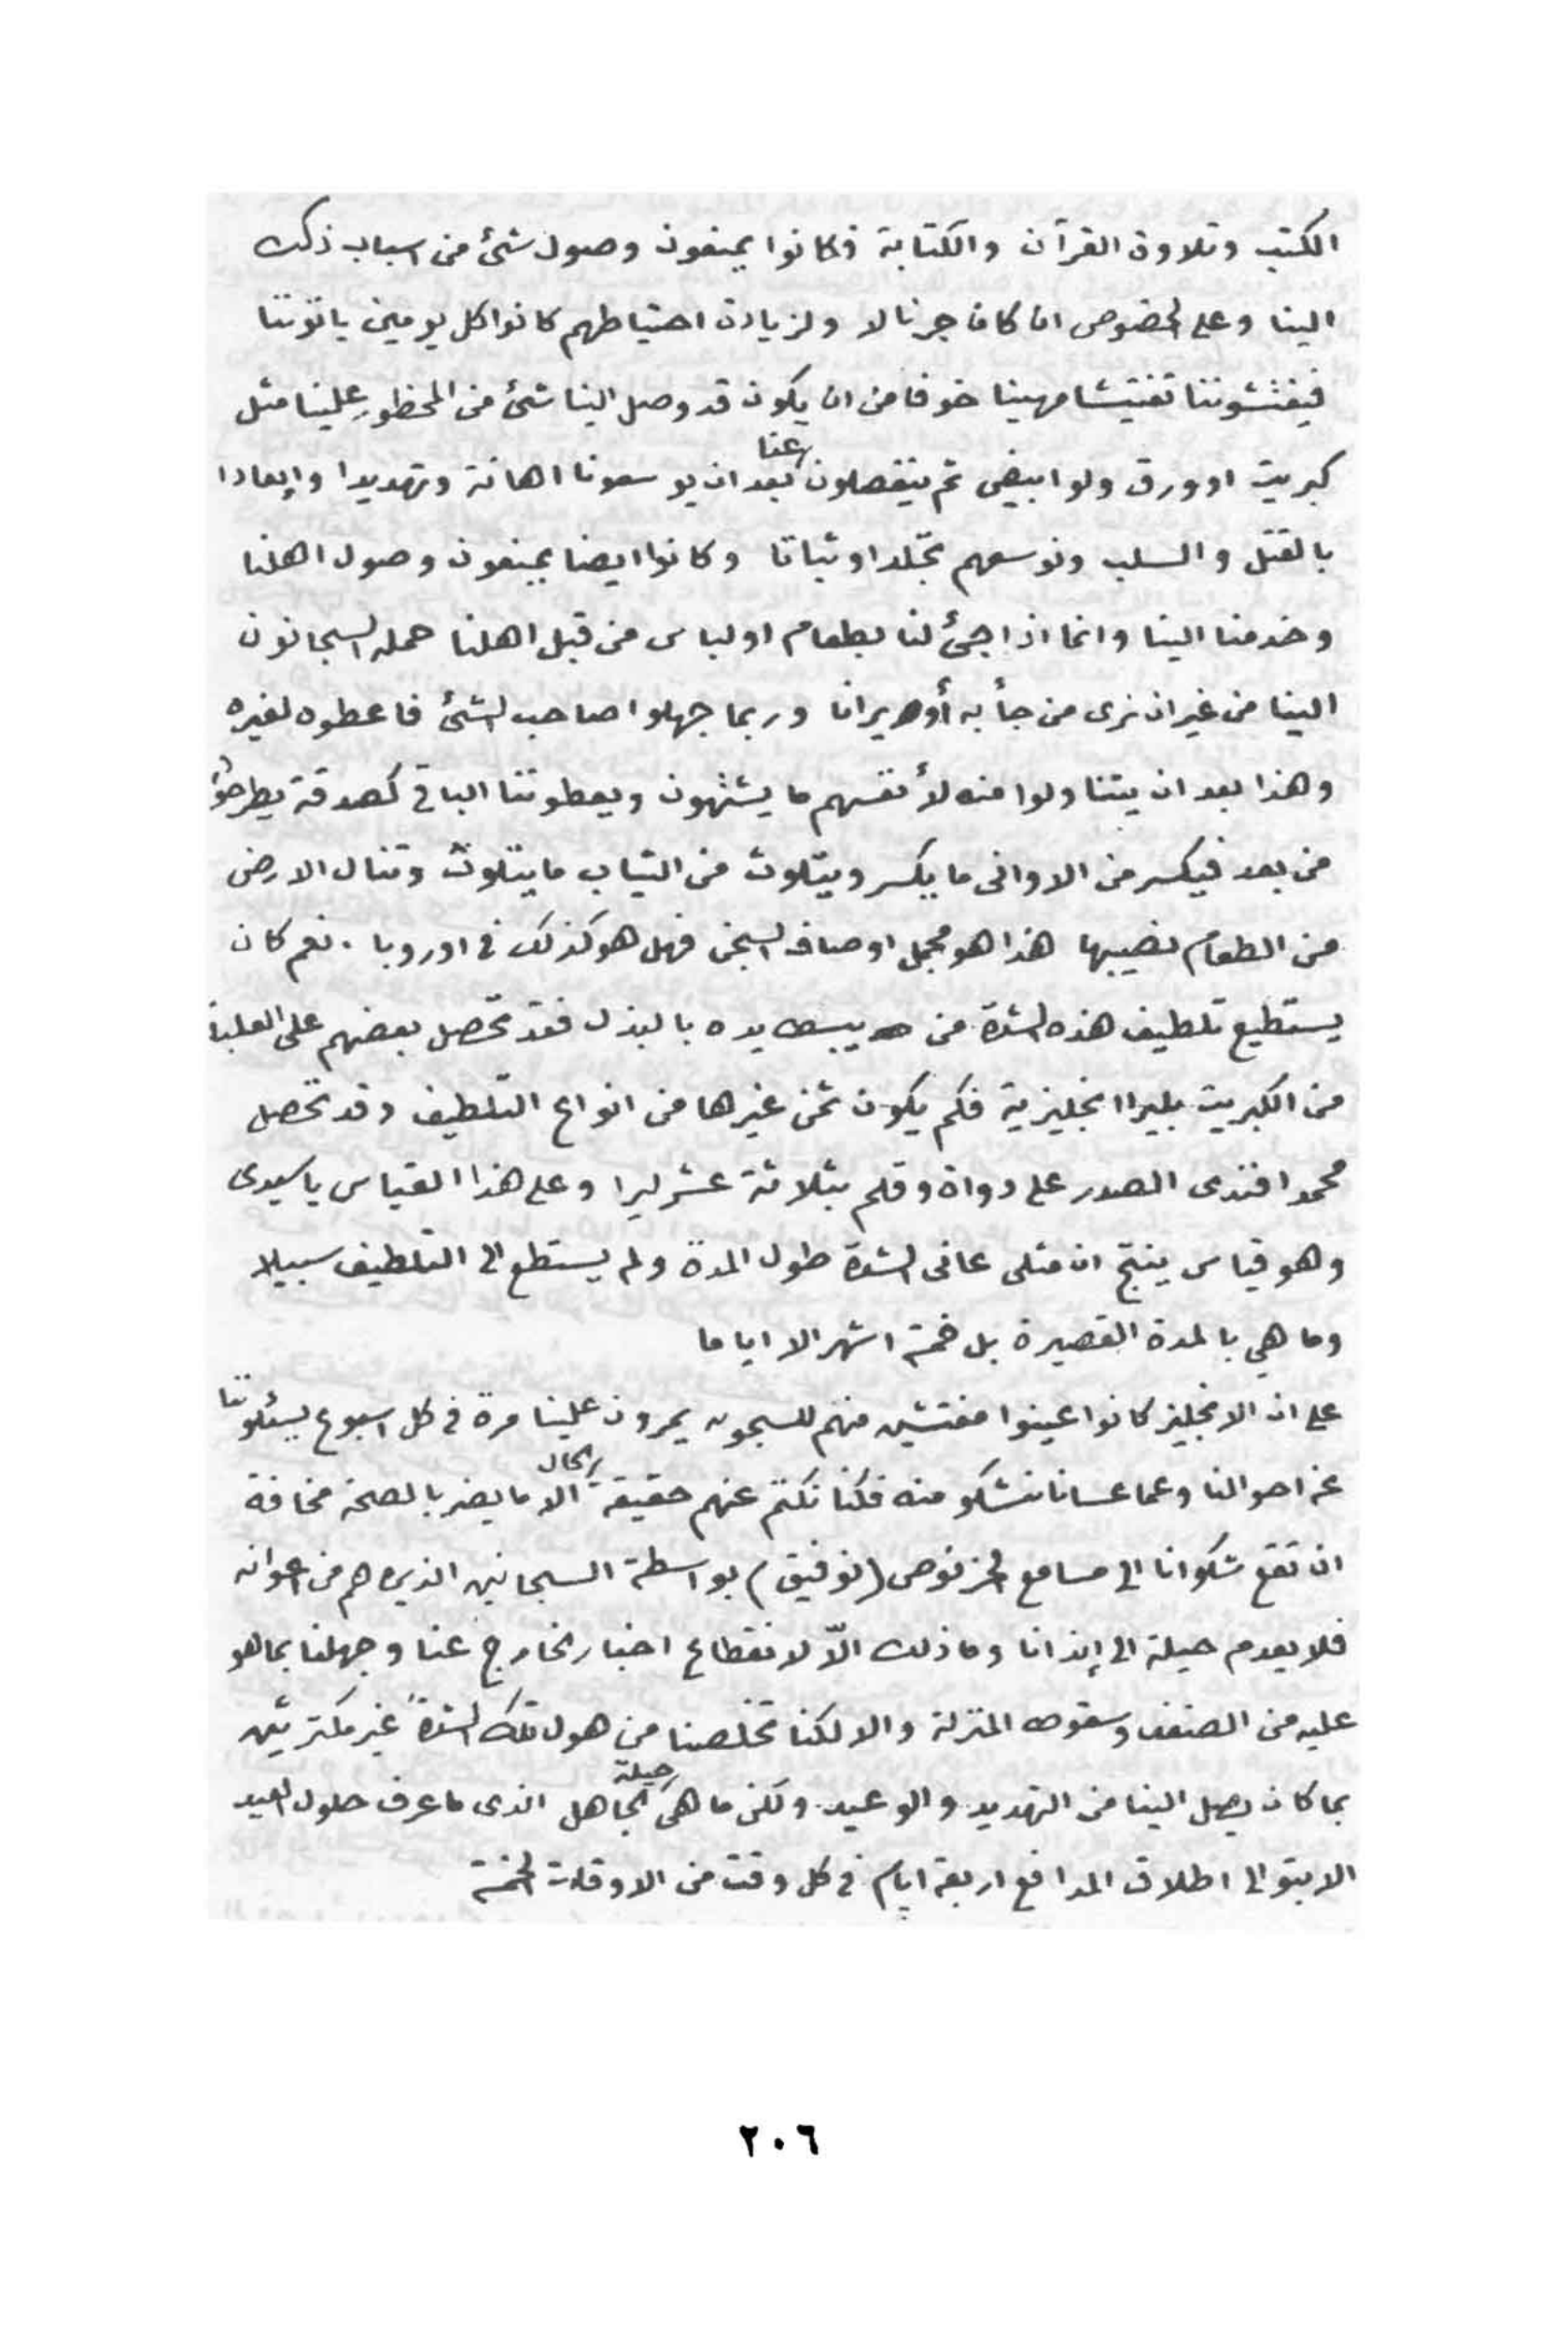 الكتب وتلاوة القرآن والكتابة فكانوا يمنعون وصول شئ من اسباب ذلك
الينا وعلى الخصوص ان كان جرنالا ولزيادة احتياطهم كانوا كل يومين ياتوننا
فيفتشوننا تفتيشا مهينا خوفا من ان يكون قد وصل الينا شئ من المحظور علينا مثل
كبريت او ورق ولو ابيض ثم ينفصلون عنا بعد ان يوسعونا اهانة وتهديدا وإيعادا
بالقتل والسلب ونوسعهم تجلدا وثباتا وكانوا ايضا يمنعون وصول اهلنا
وخدمنا الينا وانما اذا جئ لنا بطعام او لباس من قبل اهلنا حمله السجانون
الينا من غير ان نرى من جأ به أو يرانا وربما جهلوا صاحب الشئ فاعطوه لغيره
وهذا بعد ان يتناولوا منه لأنفسهم ما يشتهون ويعطوننا الباقي كصدقة يطرحونها
من بعد فيكسر من الاوانى ما يكسر ويتلوث من الثياب ما يتلوث وتنال الارض
من الطعام نصيبها هذا هو مجمل اوصاف السجن فهل هو كذلك فى اوروبا . نعم كان
يستطيع تلطيف هذه الشدة من يبسط يده بالبذل فقد تحصل بعضهم على العلبة
من الكبريت بليرا انجليزية فكم يكون ثمن غيرها من انواع التلطيف وقد تحصل
محمد افندى الصدر على دواة وقلم بثلاثة عشر ليرا وعلى هذا القياس ياسيدى
وهو قياس ينتج ان مثلى عانى الشدة طول المدة ولم يستطع الى التلطيف سبيلا
وما هي بالمدة القصيرة بل خمسة اشهر الا اياما
على ان الانجليز كانوا عينوا مفتشين منهم للسجون يمرون علينا مرة فى كل اسبوع يسئلوننا
عن احوالنا وعما عسانا نشكو منه فكنا نكتم عنهم حقيقة الحال الا ما يضر بالصحة مخافة
ان تقع شكوانا الى مسامع (توفيق) بواسطة السجانين الذين هم من اعوانه
فلا يعدم حيلة الى إيذانا وما ذلك الّا لانقطاع اخبار الخارج عنا وجهلنا بما هو
عليه من الضعف وسقوط المنزلة والا لكنا تخلصنا من هول تلك الشدة غير مكترثين
بما كان يصل الينا من التهديد والوعيد ولكن ما هى حيلة الجاهل الذى ما عرف حلول العيد
الا بتوالى اطلاق المدافع اربعة ايام فى كل وقت من الاوقات الخمسة
٢٠٦